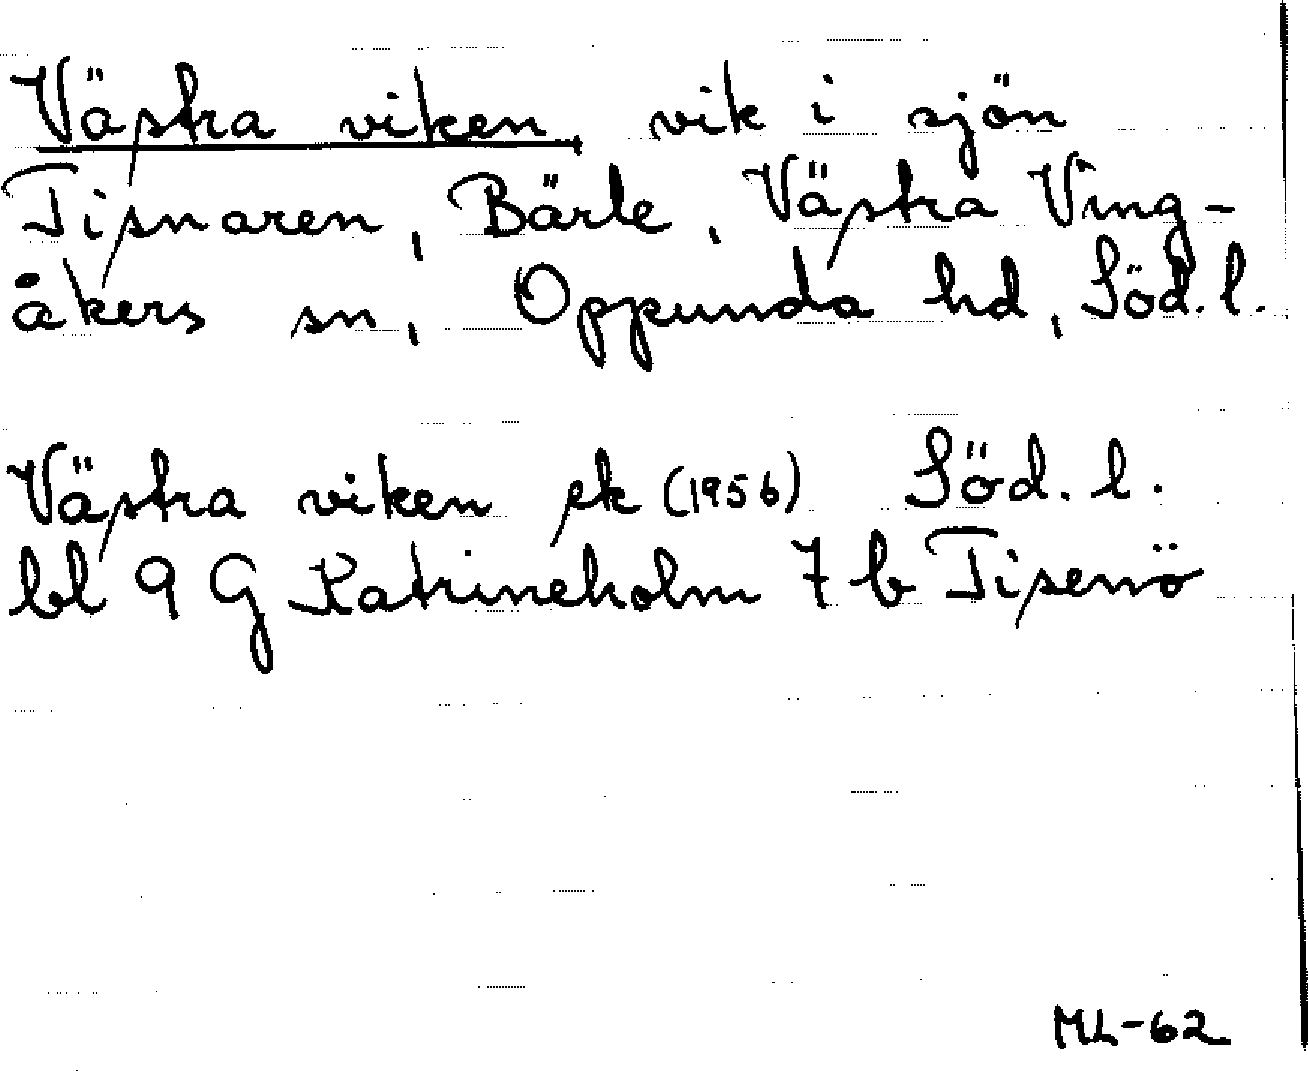 Västra viken, vik i sjön
Tisnaren, Bärle, Västra Ving-
åkers sn, Oppunda hd, Söd. l.
Västra viken ek (1956) Söd. l.
bl 9 G Katrineholm 7 b Tisenö
ML-62